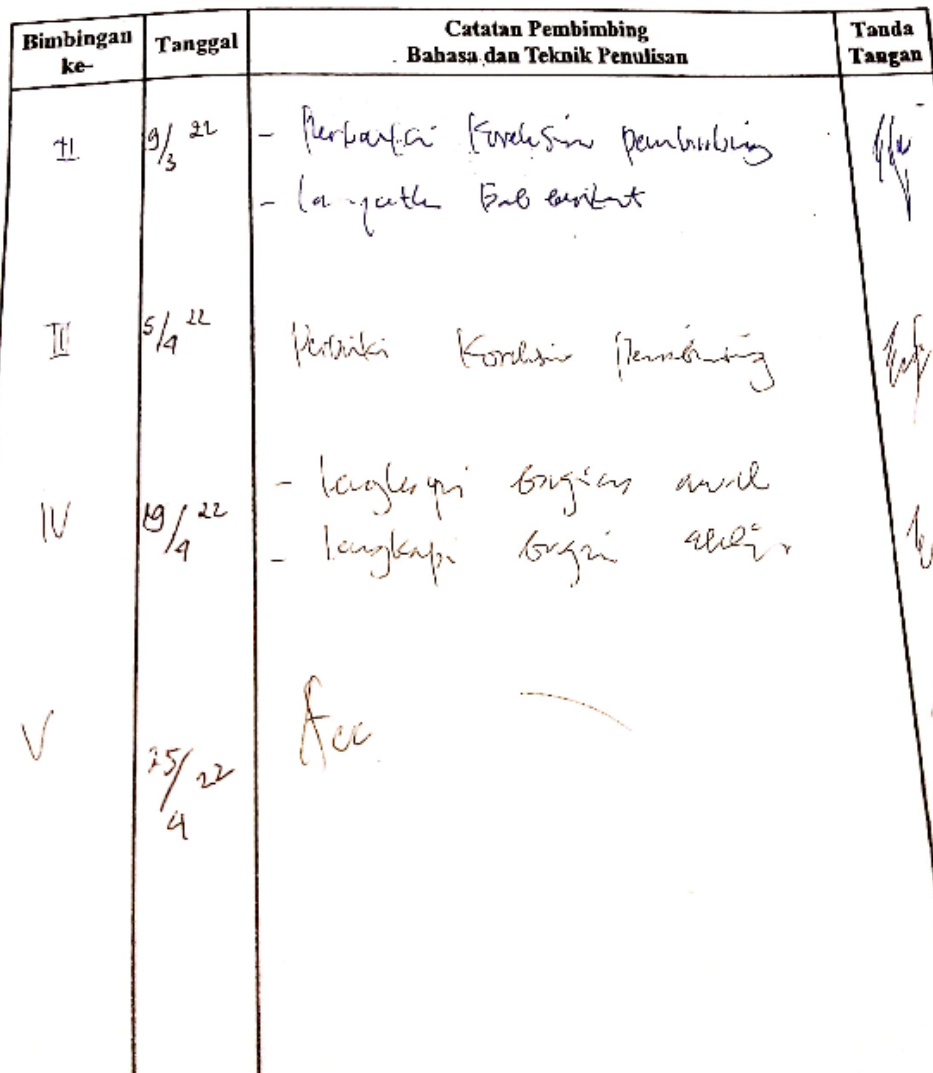 Bimbingan ke-
Tanggal
Catatan Pembimbing
Bahasa dan Teknik Penulisan
Tanda Tangan
II 9/3 22 - Perbaiki Koreksian pembimbing
-
III 5/4 22 Perbaiki Koreksian Pembimbing
IV 19/4 22 - lengkapi bagian awal
- lengkapi bagian akhir
V 25/4 22 Acc